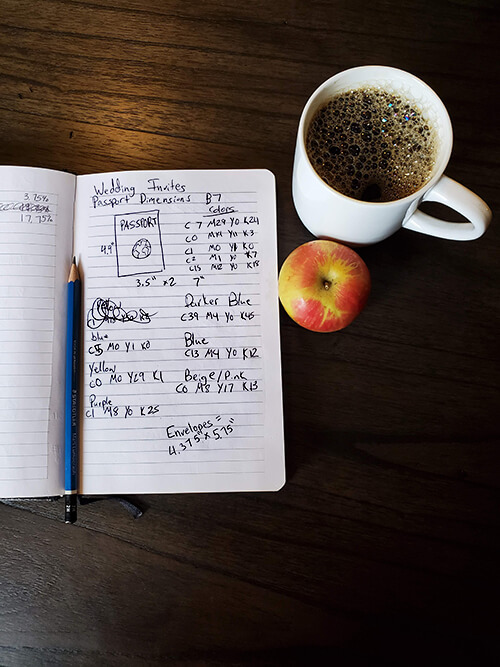 3.75%
17.75%
Wedding Invites
Passport Dimensions B7
Colors
PASSPORT
4.9"
C7 M29 Y0 K24
C0 Y11 K3
C1 M0 Y8 K0
C2 M1 Y0 K7
C15 M12 Y0 K18
3.5" x2 7"
Darker Blue
C39 M4 Y0 K45
blue
C5 M0 Y1 K0
Blue
C13 M4 Y0 K12
Yellow
C0 M0 Y29 K1
Beige/Pink
C0 M8 Y17 K13
Purple
C1 M8 Y0 K25
Envelopes =
4.375" x 5.75"
STAEDTLER